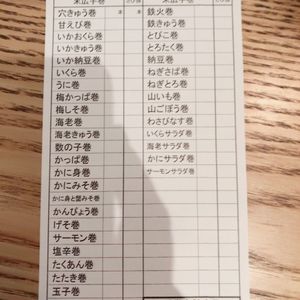 穴きゅう巻
甘えび巻
いかおくら巻
いかきゅう巻
いか納豆巻
いくら巻
うに巻
梅かっぱ巻
梅しそ巻
海老巻
海老きゅう巻
数の子巻
かっぱ巻
かに身巻
かにみそ巻
かに身と蟹みそ巻
かんぴょう巻
げそ巻
サーモン巻
塩辛巻
たくあん巻
たたき巻
玉子巻
鉄火巻
鉄きゅう巻
とびこ巻
とろたく巻
納豆巻
ねぎさば巻
ねぎとろ巻
山いも巻
山ごぼう巻
わさびなす巻
いくらサラダ巻
海老サラダ巻
かにサラダ巻
サーモンサラダ巻